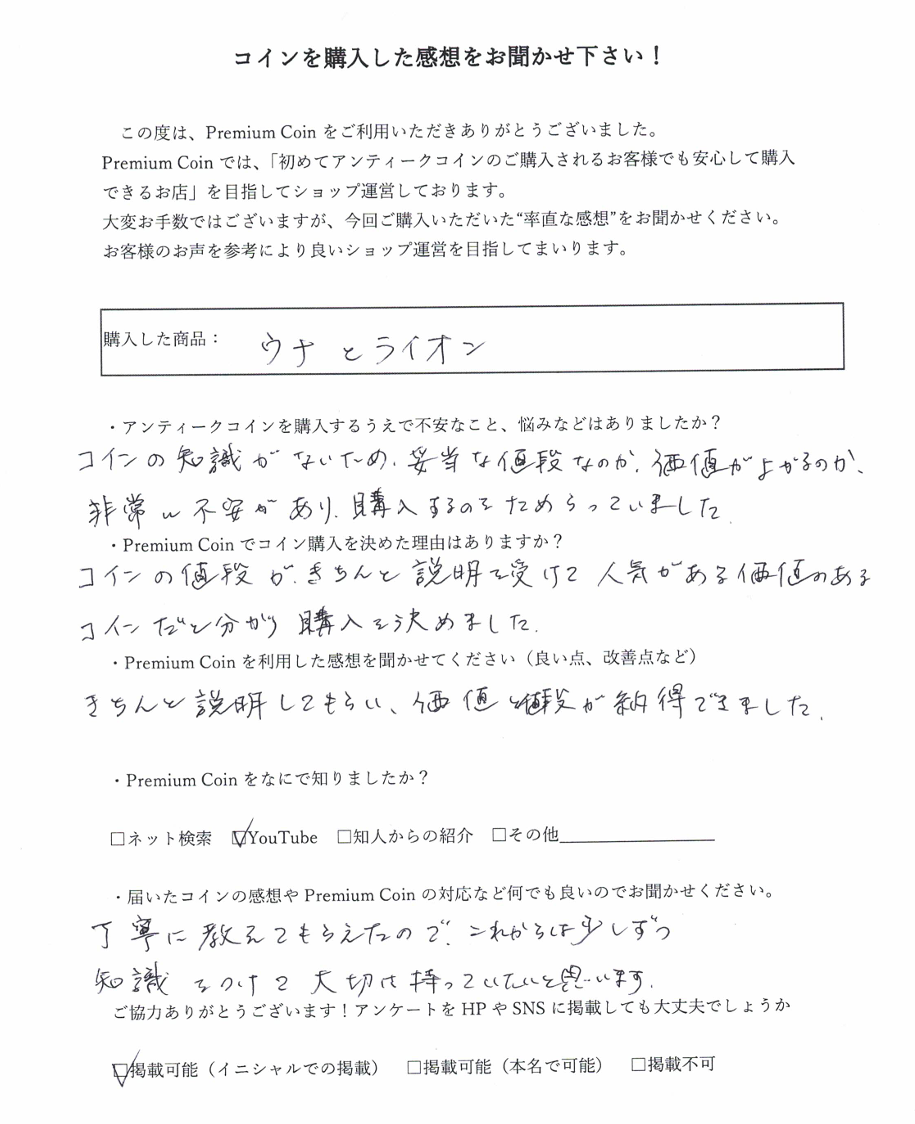 コインを購入した感想をお聞かせ下さい！
この度は、Premium Coin をご利用いただきありがとうございました。
Premium Coin では、「初めてアンティークコインのご購入されるお客様でも安心して購入
できるお店」を目指してショップ運営しております。
大変お手数ではございますが、今回ご購入いただいた“率直な感想”をお聞かせください。
お客様のお声を参考により良いショップ運営を目指してまいります。
購入した商品： ウナとライオン
・アンティークコインを購入するうえで不安なこと、悩みなどはありましたか？
コインの知識がないため、妥当な値段なのか、価値が上がるのか、
非常に不安があり、購入するのをためらっていました。
・Premium Coin でコイン購入を決めた理由はありますか？
コインの値段が、きちんと説明を受けて人気がある価値のある
コインだと分かり購入を決めました。
・Premium Coin を利用した感想を聞かせてください（良い点、改善点など）
きちんと説明してもらい、価値と値段が納得できました。
・Premium Coin をなにで知りましたか？
□ネット検索 ☑YouTube □知人からの紹介 □その他
・届いたコインの感想や Premium Coin の対応など何でも良いのでお聞かせください。
丁寧に教えてもらえたので、これからは少しずつ
知識をつけて大切に持っていたいと思います。
ご協力ありがとうございます！アンケートを HP や SNS に掲載しても大丈夫でしょうか
☑掲載可能（イニシャルでの掲載） □掲載可能（本名で可能） □掲載不可